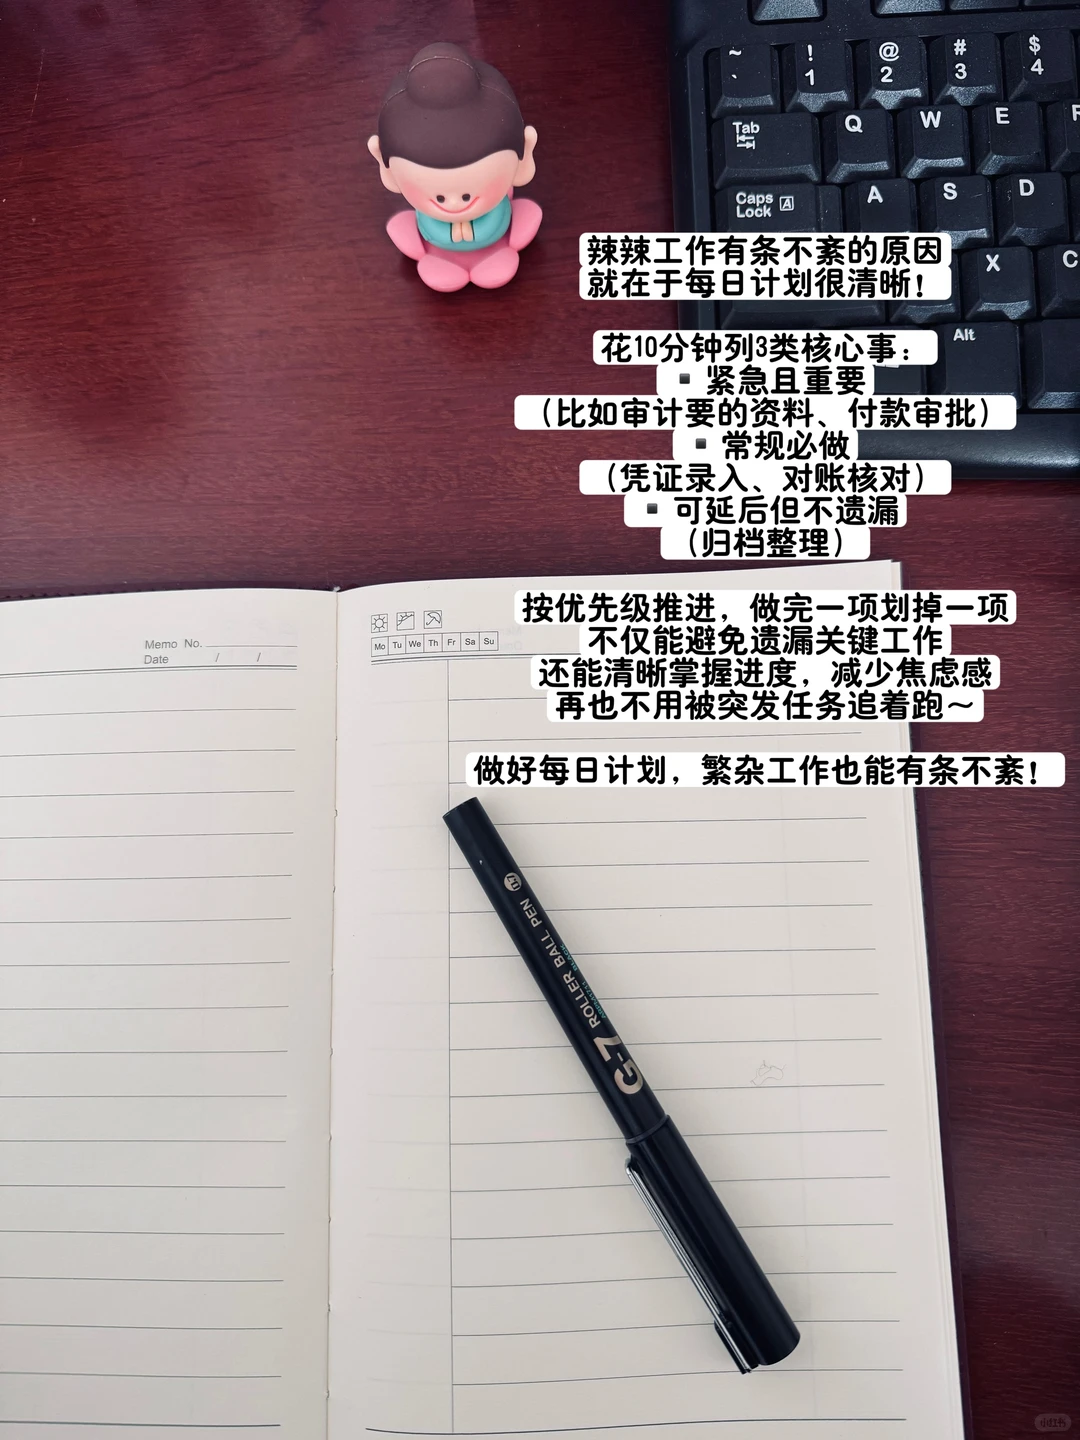 ~
`
!
1
@
2
#
3
$
4
Tab
Q
W
E
Caps Lock
A
A
S
D
X
C
Alt
辣辣工作有条不紊的原因
就在于每日计划很清晰!
花10分钟列3类核心事:
▪ 紧急且重要
(比如审计要的资料、付款审批)
▪ 常规必做
(凭证录入、对账核对)
▪ 可延后但不遗漏
(归档整理)
按优先级推进,做完一项划掉一项
不仅能避免遗漏关键工作
还能清晰掌握进度,减少焦虑感
再也不用被突发任务追着跑~
做好每日计划,繁杂工作也能有条不紊!
Memo No.
Date / /
Mo Tu We Th Fr Sa Su
G-7 ROLLER BALL PEN
BLACK
小红书